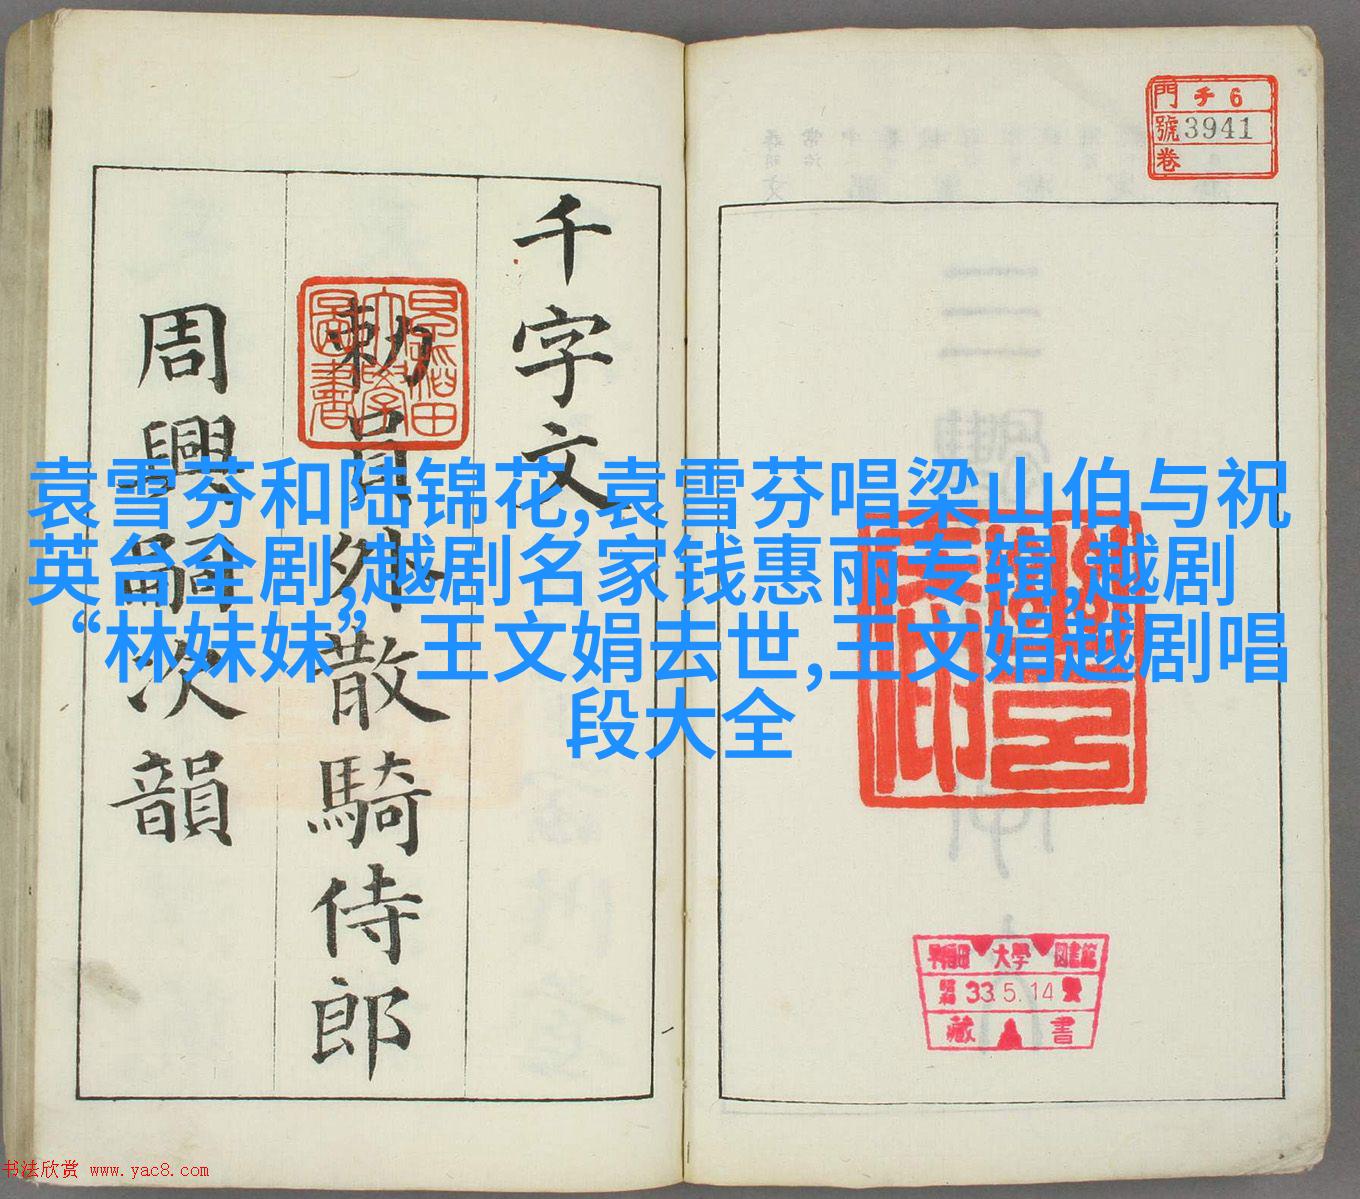 門 チ 6
號 3941
卷
千字文
勅員外散騎侍郎
周興嗣次韻
袁雪芬和陆锦花,袁雪芬唱梁山伯与祝
英台全剧,越剧名家钱惠丽专辑,越剧
“林妹妹”王文娟去世,王文娟越剧唱
段大全
早稻田大學圖書
早稻田 大學 圖書館
33.5.14
藏 書
书法欣赏 www.yac8.com